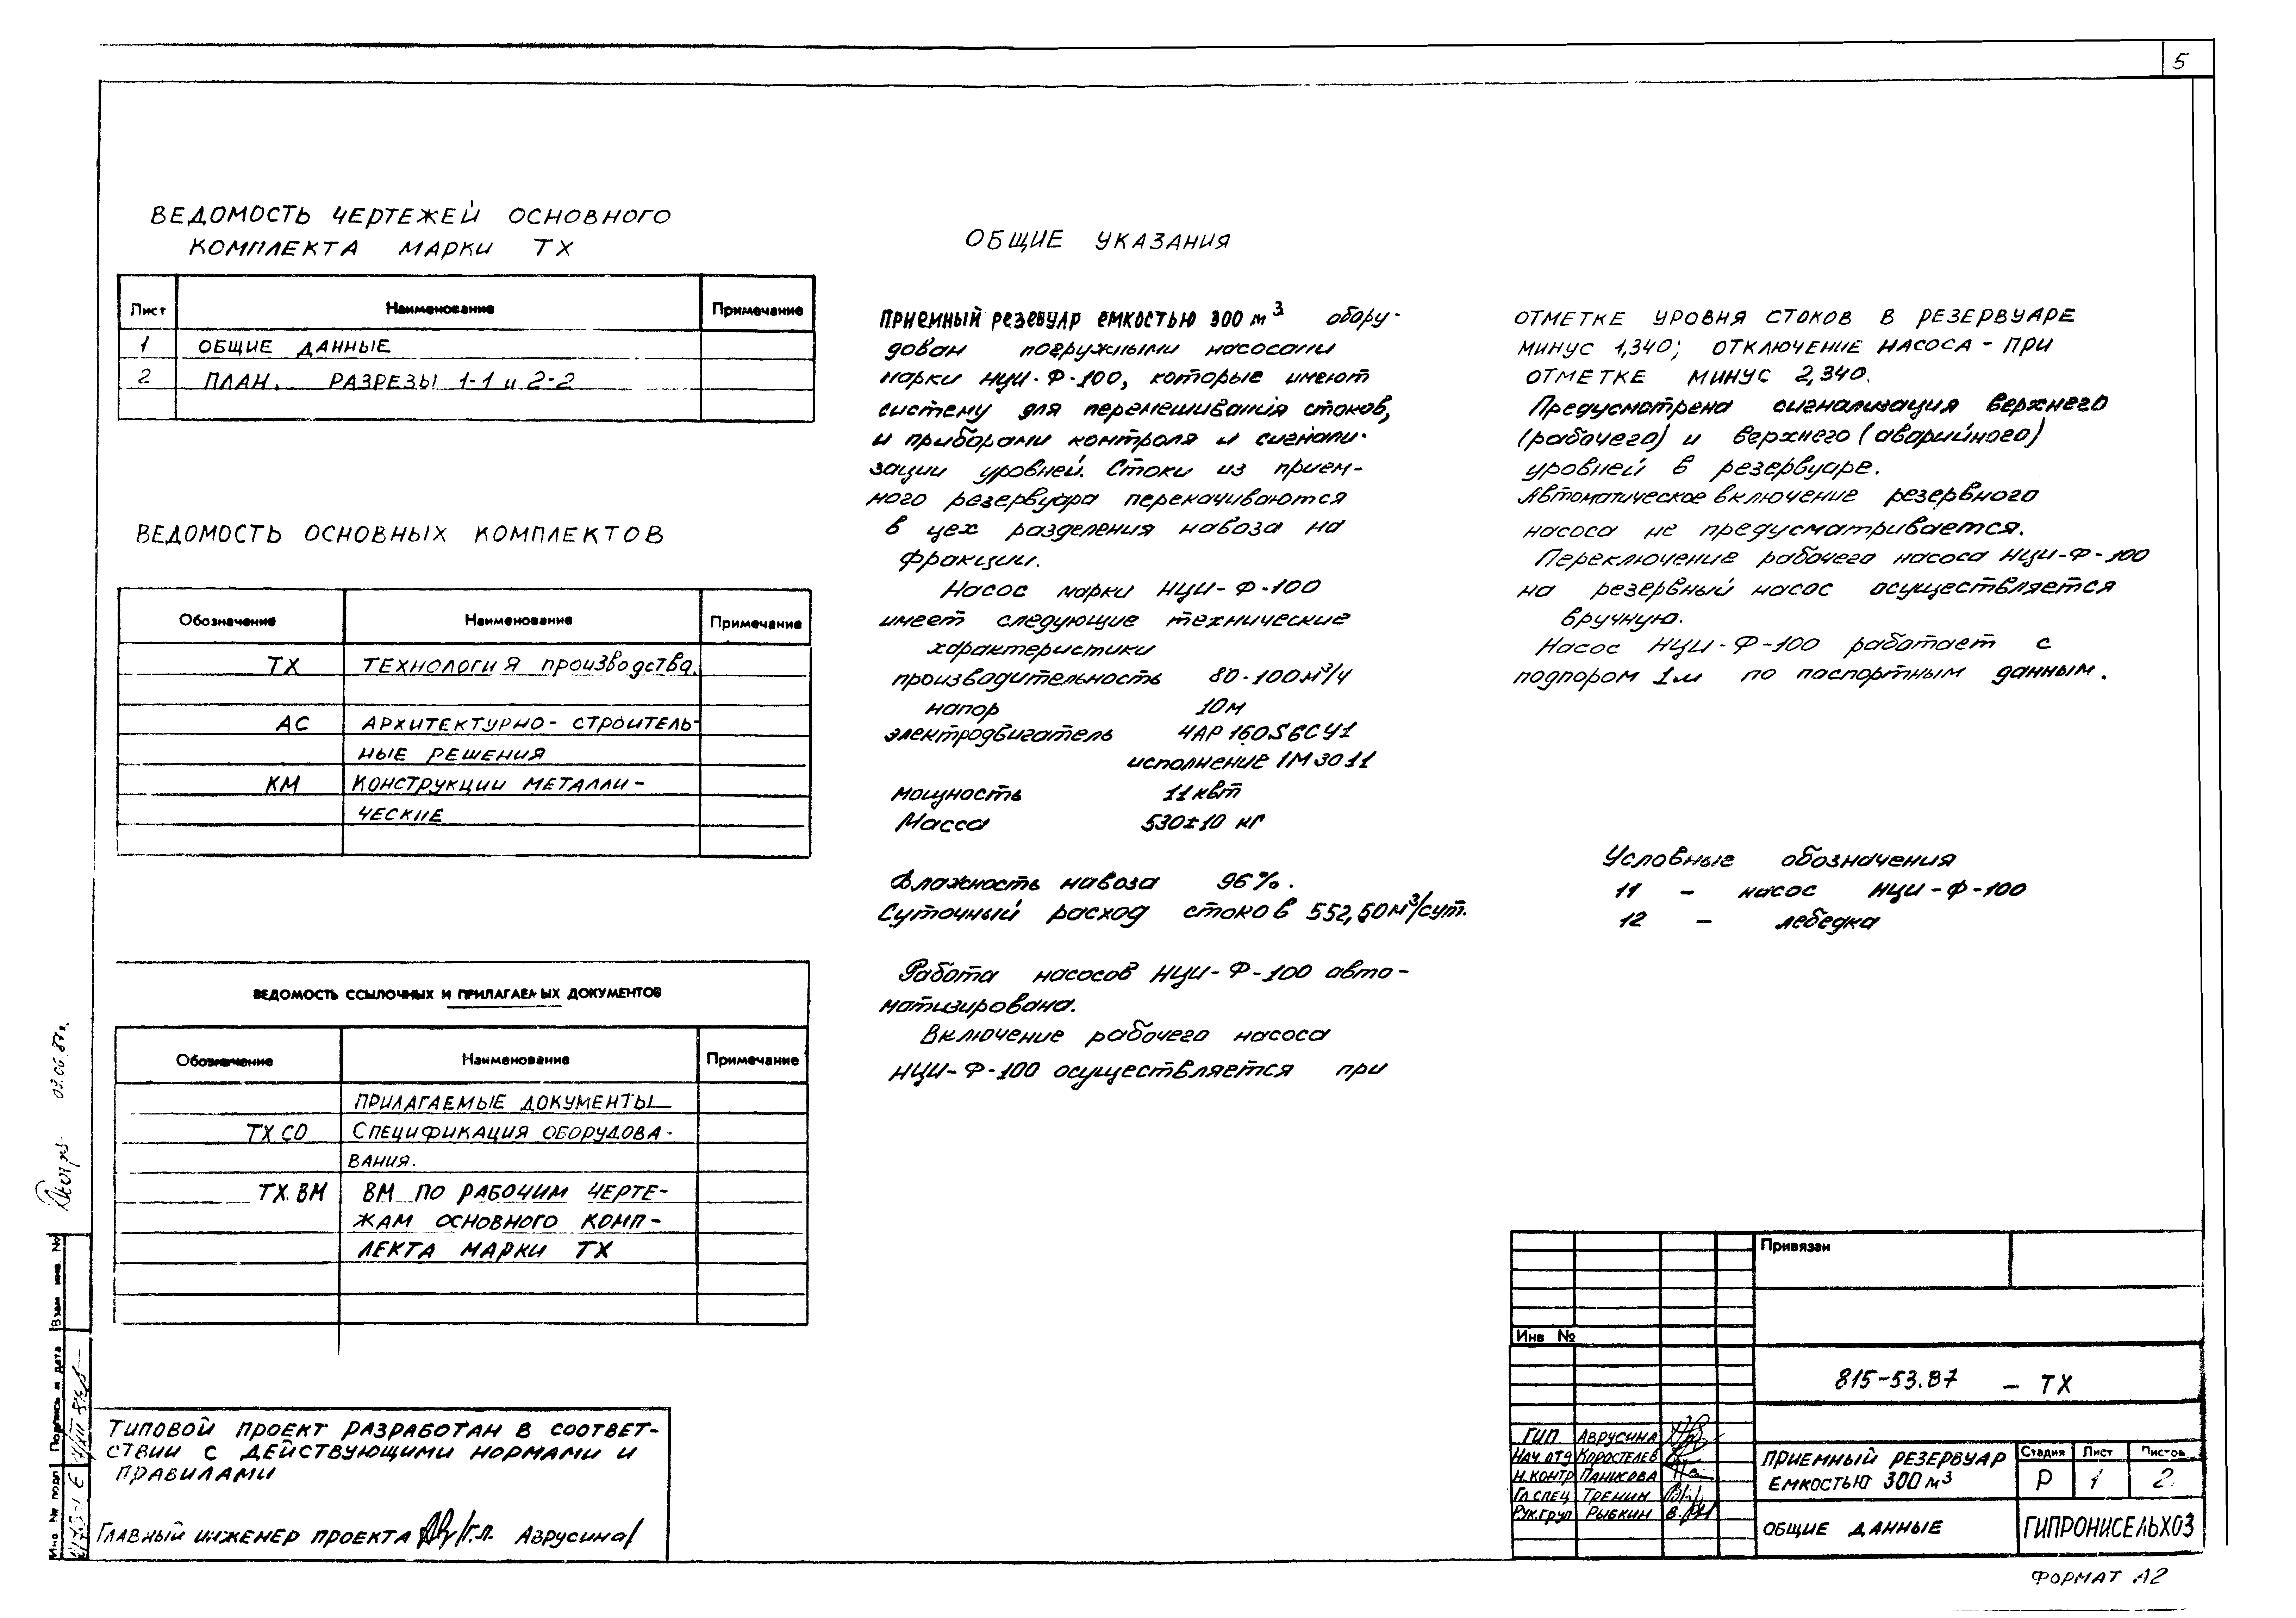 5
ВЕДОМОСТЬ ЧЕРТЕЖЕЙ ОСНОВНОГО
КОМПЛЕКТА МАРКИ ТХ
Лист Наименование Примечание
1 ОБЩИЕ ДАННЫЕ
2 ПЛАН. РАЗРЕЗЫ 1-1 и 2-2
ВЕДОМОСТЬ ОСНОВНЫХ КОМПЛЕКТОВ
Обозначение Наименование Примечание
ТХ ТЕХНОЛОГИЯ производства.
АС АРХИТЕКТУРНО-СТРОИТЕЛЬ-
НЫЕ РЕШЕНИЯ
КМ КОНСТРУКЦИИ МЕТАЛЛИ-
ЧЕСКИЕ
ВЕДОМОСТЬ ССЫЛОЧНЫХ И ПРИЛАГАЕМЫХ ДОКУМЕНТОВ
Обозначение Наименование Примечание
ПРИЛАГАЕМЫЕ ДОКУМЕНТЫ
ТХ СО СПЕЦИФИКАЦИЯ ОБОРУДОВА-
ВАНИЯ.
ТХ.ВМ ВМ ПО РАБОЧИМ ЧЕРТЕ-
ЖАМ ОСНОВНОГО КОМП-
ЛЕКТА МАРКИ ТХ
ТИПОВОЙ ПРОЕКТ РАЗРАБОТАН В СООТВЕТ-
СТВИИ С ДЕЙСТВУЮЩИМИ НОРМАМИ И
ПРАВИЛАМИ
ГЛАВНЫЙ ИНЖЕНЕР ПРОЕКТА /Г.Л. АВРУСИНА/
ОБЩИЕ УКАЗАНИЯ
ПРИЕМНЫЙ РЕЗЕВУАР ЕМКОСТЬЮ 300 м³ обору-
дован погружными насосами
марки НЦИ-Ф-100, которые имеют
систему для перемешивания стоков,
и приборами контроля и сигнали-
зации уровней. Стоки из прием-
ного резервуара перекачиваются
в цех разделения навоза на
фракции.
Насос марки НЦИ-Ф-100
имеет следующие технические
характеристики
производительность 80-100 м³/ч
напор 10 м
электродвигатель 4АР 160S6СУ1
исполнение 1М3011
мощность 11 квт
Масса 530±10 кг
Влажность навоза 96%.
Суточный расход стоков 552,60 м³/сут.
Работа насосов НЦИ-Ф-100 авто-
матизирована.
Включение рабочего насоса
НЦИ-Ф-100 осуществляется при
ОТМЕТКЕ УРОВНЯ СТОКОВ В РЕЗЕРВУАРЕ
МИНУС 1,340; ОТКЛЮЧЕНИЕ НАСОСА - ПРИ
ОТМЕТКЕ МИНУС 2,340.
Предусмотрена сигнализация верхнего
(рабочего) и верхнего (аварийного)
уровней в резервуаре.
Автоматическое включение резервного
насоса не предусматривается.
Переключение рабочего насоса НЦИ-Ф-100
на резервный насос осуществляется
вручную.
Насос НЦИ-Ф-100 работает с
подпором 1м по паспортным данным.
Условные обозначения
11 - насос НЦИ-Ф-100
12 - лебедка
Привязан
Инв №
815-53.87 - ТХ
ГИП АВРУСИНА
НАЧ.ОТД КОРОСТЕЛЕВ
Н.КОНТР ПАНКОВА
ГЛ.СПЕЦ ТРЕНИН
РУК.ГРУП РЫБКИН
ПРИЕМНЫЙ РЕЗЕРВУАР
ЕМКОСТЬЮ 300 м³
Стадия Лист Листов
Р 1 2
ОБЩИЕ ДАННЫЕ
ГИПРОНИСЕЛЬХОЗ
ФОРМАТ А2
Инв № подл Подпись и дата Взам инв. №